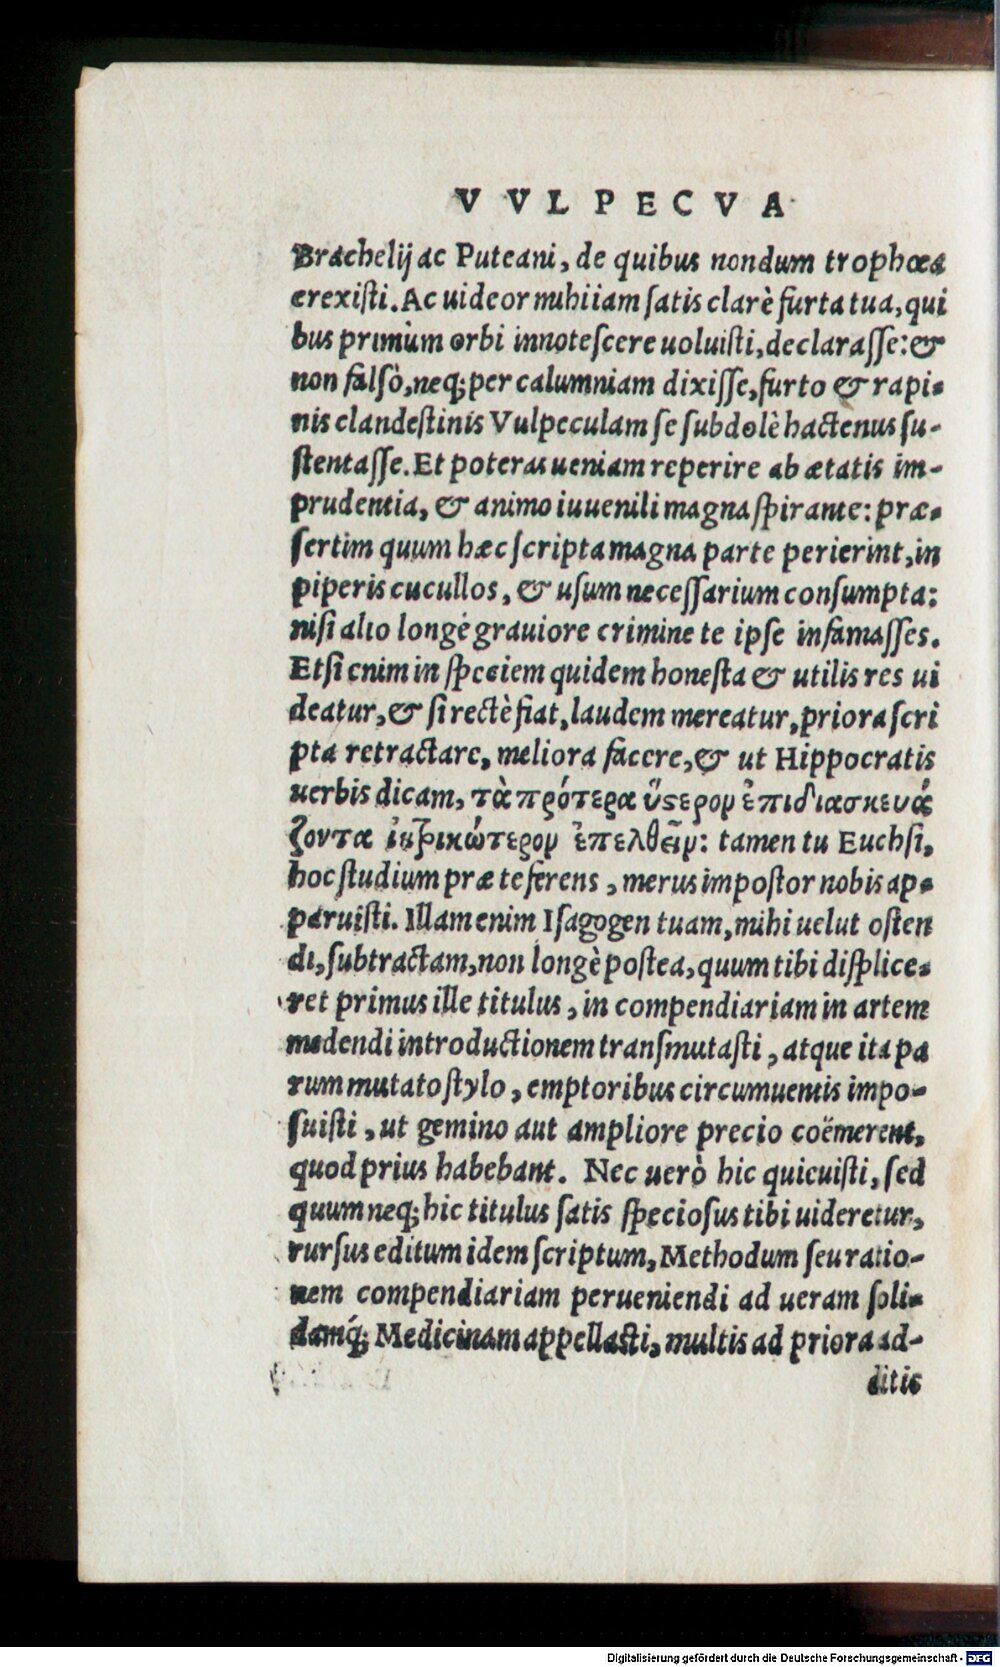 VVLPECVA
Brachelij ac Puteani, de quibus nondum trophœa
erexisti. Ac uideor mihi iam satis clarè furta tua, qui
bus primùm orbi innotescere uoluisti, declarasse: &
non falsò, neq; per calumniam dixisse, furto & rapi-
nis clandestinis Vulpeculam se subdolè hactenus su-
stentasse. Et poteras ueniam reperire ab ætatis im-
prudentia, & animo iuuenili magna spirante: præ-
sertim quum hæc scripta magna parte perierint, in
piperis cucullos, & usum necessarium consumpta:
nisi alio longè grauiore crimine te ipse infamasses.
Etsi enim in speciem quidem honesta & utilis res ui
deatur, & si rectè fiat, laudem mereatur, priora scri
pta retractare, meliora facere, & ut Hippocratis
uerbis dicam, τὰ πρότερα ὕςερον ἐπιδιασκευά
ζοντα ἰητρικώτερον ἐπελθεῖν: tamen tu Euchsi,
hoc studium præ te ferens, merus impostor nobis ap-
paruisti. Illam enim Isagogen tuam, mihi uelut osten
di, subtractam, non longè postea, quum tibi displice-
ret primus ille titulus, in compendiariam in artem
medendi introductionem transmutasti, atque ita pa
rum mutato stylo, emptoribus circumuentis impo-
suisti, ut gemino aut ampliore precio coëmerent,
quod prius habebant. Nec uerò hic quieuisti, sed
quum neq; hic titulus satis speciosus tibi uideretur,
rursus editum idem scriptum, Methodum seu ratio-
nem compendiariam perueniendi ad ueram soli-
damq́; Medicinam appellasti, multis ad priora ad-
ditis
Digitalisierung gefördert durch die Deutsche Forschungsgemeinschaft - DFG